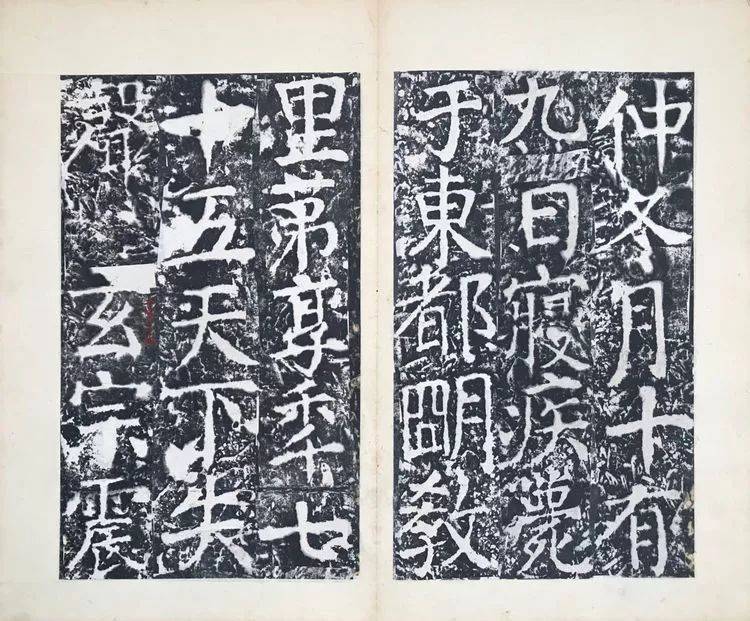 仲冬月十有
九日寢疾薨
于東都朙教
里苐享秊七
十五天下失
聲玄宗震